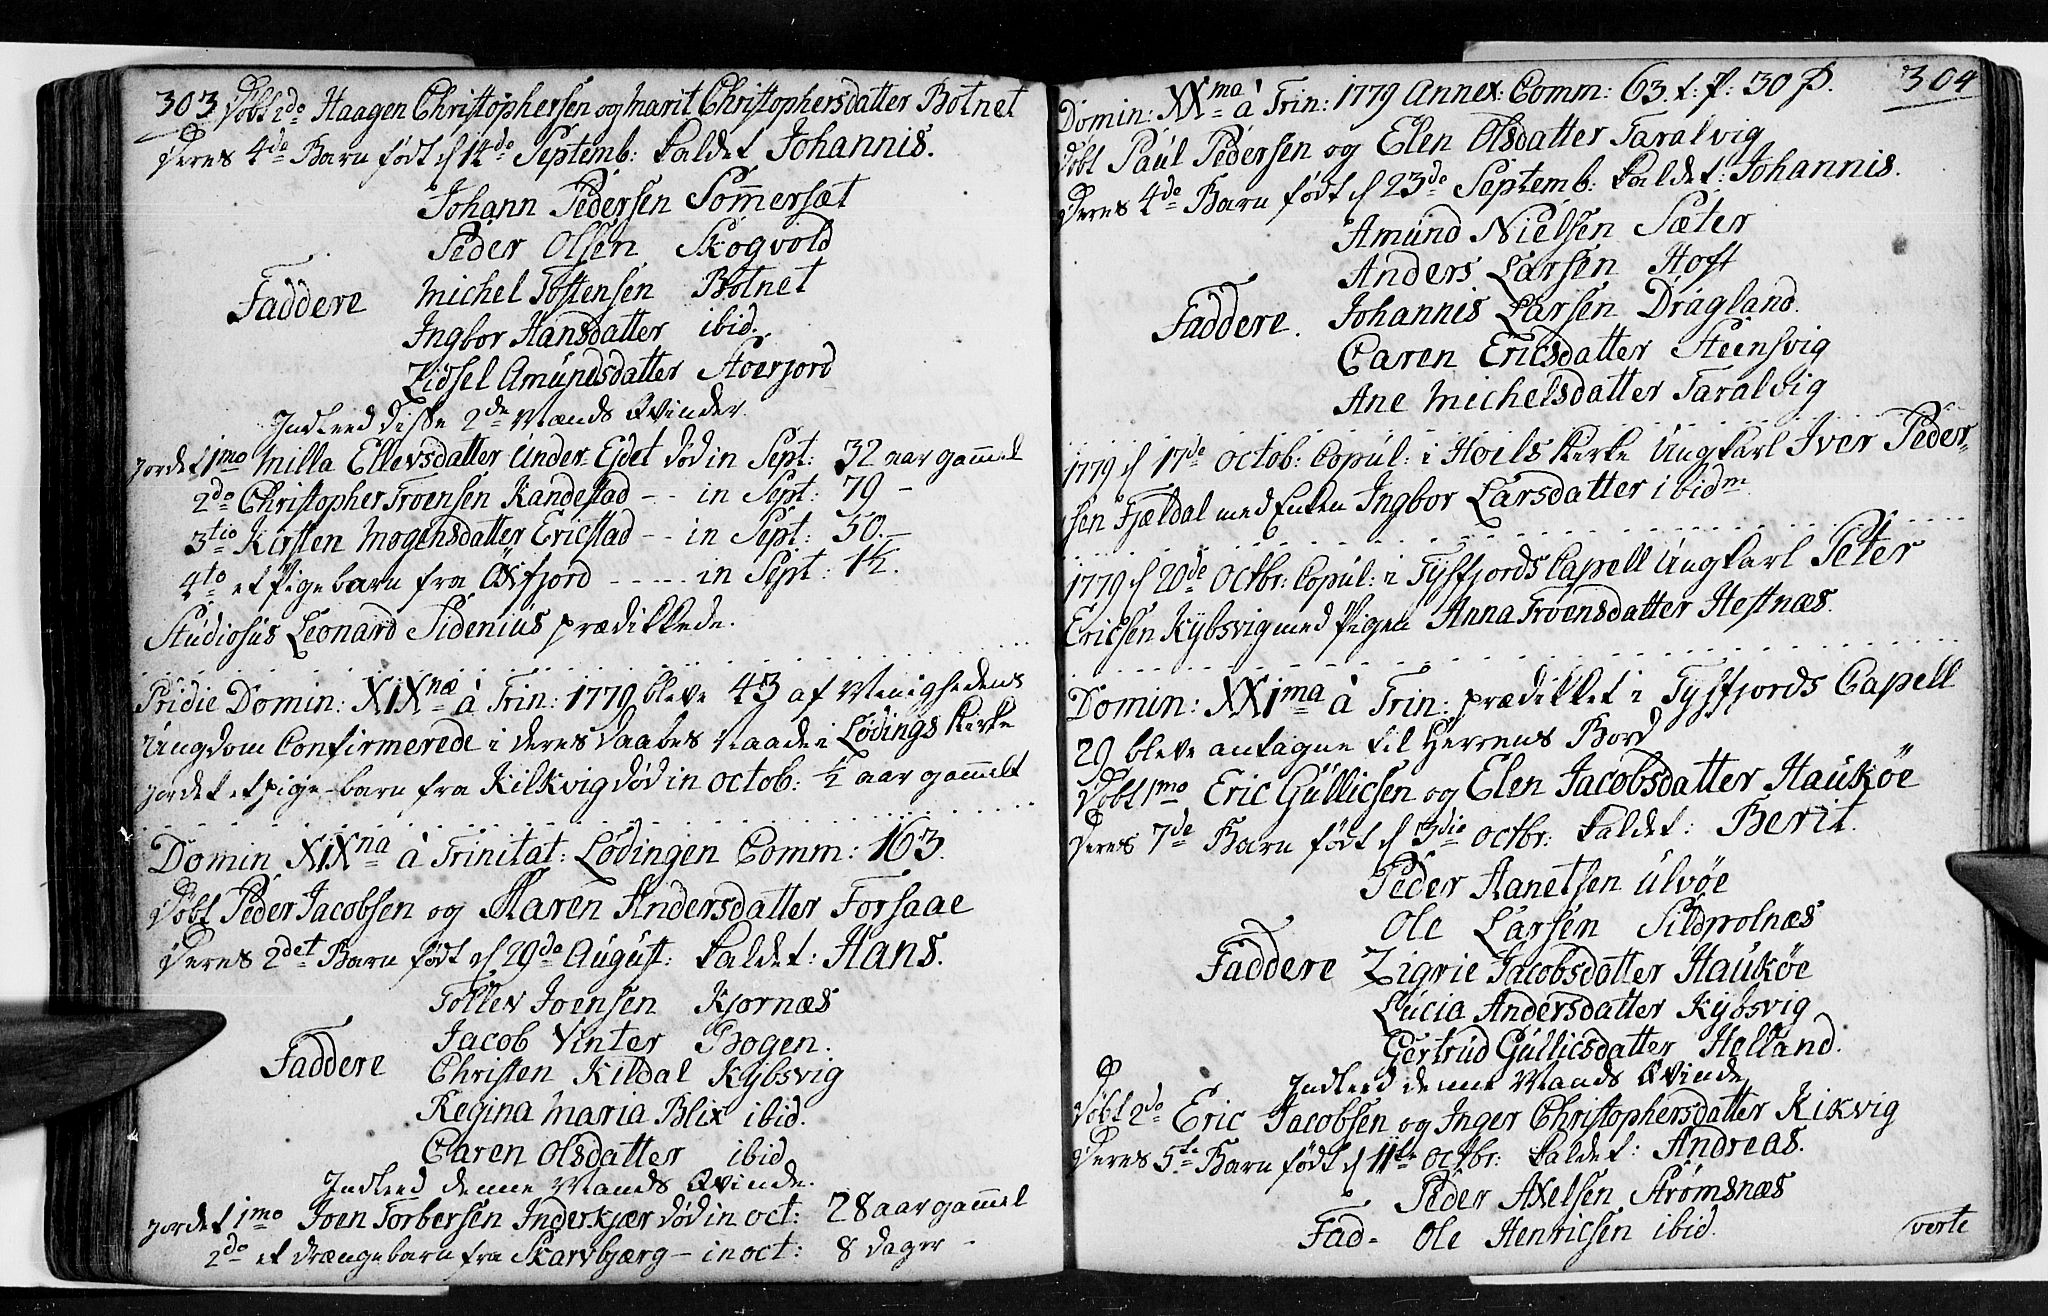 303 Døbt 2do Haagen Christophersen og Marit Christophersdatter Botnet
Deres 4de Barn født d 14de Septemb: kaldet Johannis.
Johann Pedersen Sommersæt
Peder Olsen Skogvold
Faddere Michel Tostensen Botnet
Ingbor Hansdatter ibid.
Zidsel Amundsdatter Storjord
Indleed disse 2de Mænds Qvinder.
Jordet 1mo Milla Ellevsdatter Under-Ejdet død in Sept: 32 aar gammel
2do Christopher Troensen Kandestad -- in Sept: 79 -
3tio Kirsten Mogensdatter Ericstad -- in Sept: 50. -
4to et Pigebarn fra Øxfjord ----- in Sept: 1½.
Studiosus Leonard Sidenius prædikkede.
Pridie Domin: XIXnæ à Trin: 1779 bleve 43 af Menighedens
Ungdom Confirmerede i deres Daabes Naade i Lødings Kirke
Jordet et pige-barn fra Kilkvig død in octob: ½ aar gammelt
Domin XIXna à Trinitat: Lødingen Comm: 163.
Døbt Peder Jacobsen og Karen Andersdatter Forsaae
Deres 2det Barn født d 29de August: kaldet: Hans.
Tollev Joensen Kjornæs
Jacob Vinter Bogen.
Faddere Christen Kildal Kybsvig
Regina Maria Blix ibid.
Caren Olsdatter ibid
Indleed denne Mands Qvinde.
Jordet 1mo Joen Torbersen Inderkjær død in oct: 28 aar gammel
2do et drængebarn fra Skarvbjærg - in oct: 8 dager -
304
Domin: XXma à Trin: 1779 Annex: Comm: 63. t: P: 30 β.
Døbt Paul Pedersen og Elen Olsdatter Taralvig
Deres 4de Barn født d 23de Septemb: kaldet: Johannis.
Amund Nielsen Sæter
Anders Larsen Hoft
Faddere. Johannis Larsen Dragland.
Caren Ericsdatter Steensvig
Ane Michelsdatter Taralvig
1779 d 17de octob: Copul: i Hoils Kirke Ungkarl Iver Peder-
sen Fjældal med Enken Ingbor Larsdatter ibidm.
1779 d 20de Octbr: Copul: i Tysfjords Capell Ungkarl Peter
Ericsen Kybsvig med Pigen Anna Troensdatter Hestnæs.
Domin: XXIma à Trin: prædikket i Tysfjords Capell
29 bleve antagne til Herrens Bord
Døbt 1mo Eric Gullicsen og Elen Jacobsdatter Haukøe
Deres 7de Barn født d 3die Octbr: kaldet: Berit.
Peder Hanetsen Ulvøe
Ole Larsen Sildpolnæs
Faddere Zigrie Jacobsdatter Haukøe
Lucia Andersdatter Kybsvig
Gertrud Gullicsdatter Helland.
Indleed denne Mands Qvinde
Døbt 2do Eric Jacobsen og Inger Christophersdatter Kikvig
Deres 5te Barn født d 11te Octbr: kaldet: Andreas.
Peder Axelsen Strømsnæs
Fad- Ole Henricsen ibid.
verte